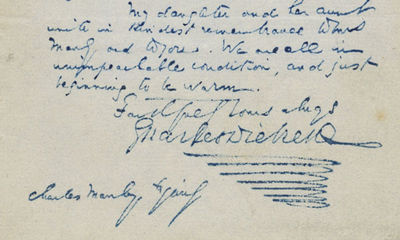 My daughter and her aunt
unite in kindest remembrance to Mrs
Manby and to you. We are all in
unimpeachable condition, and just
beginning to be warm.
Faithfully Yours always
Charles Dickens
Charles Manby, Esquire